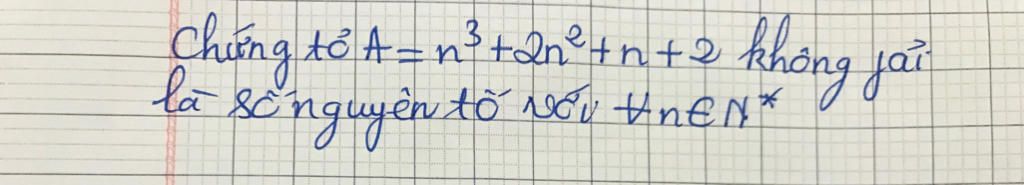 Chứng tỏ A = n³ + 2n² + n + 2 không fải
là số nguyên tố với ∀n∈N*